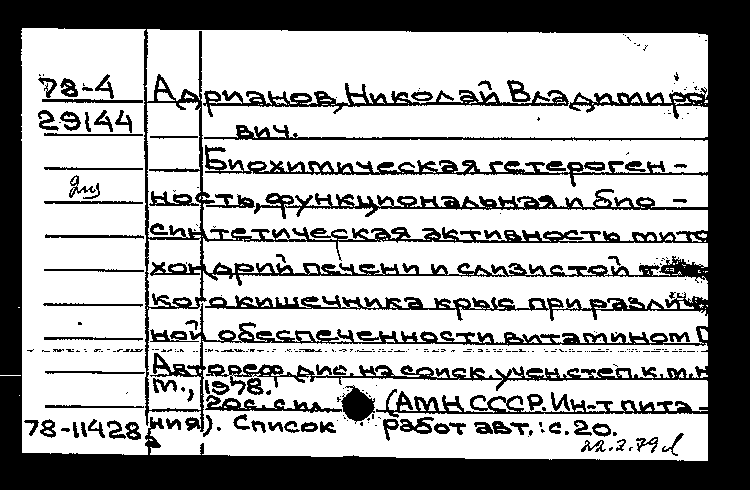 78-4 Адрианов, Николай Владимиро
29144 вич.
Биохимическая гетероген-
ность, функциональная и био-
синтетическая активность мито
хондрий печени и слизистой
кого кишечника крыс при различ
ной обеспеченности витамином D
Автореф. дис. на соиск. учен. степ. к.м.н
М., 1978.
20с. с ил. (АМН СССР. Ин-т пита-
78-11428 ния). Список работ авт.: с.20.
22.2.79